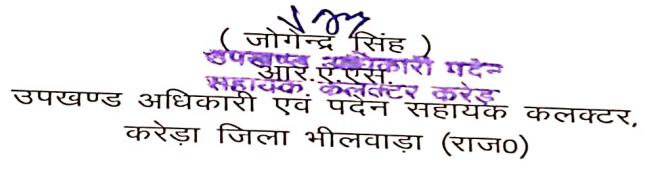 ( जोगेन्द्र सिंह )
उपखण्ड अधिकारी पदेन
आर.ए.एस.
सहायक कलेक्टर करेड़ा
उपखण्ड अधिकारी एवं पदेन सहायक कलक्टर,
करेड़ा जिला भीलवाड़ा (राज0)